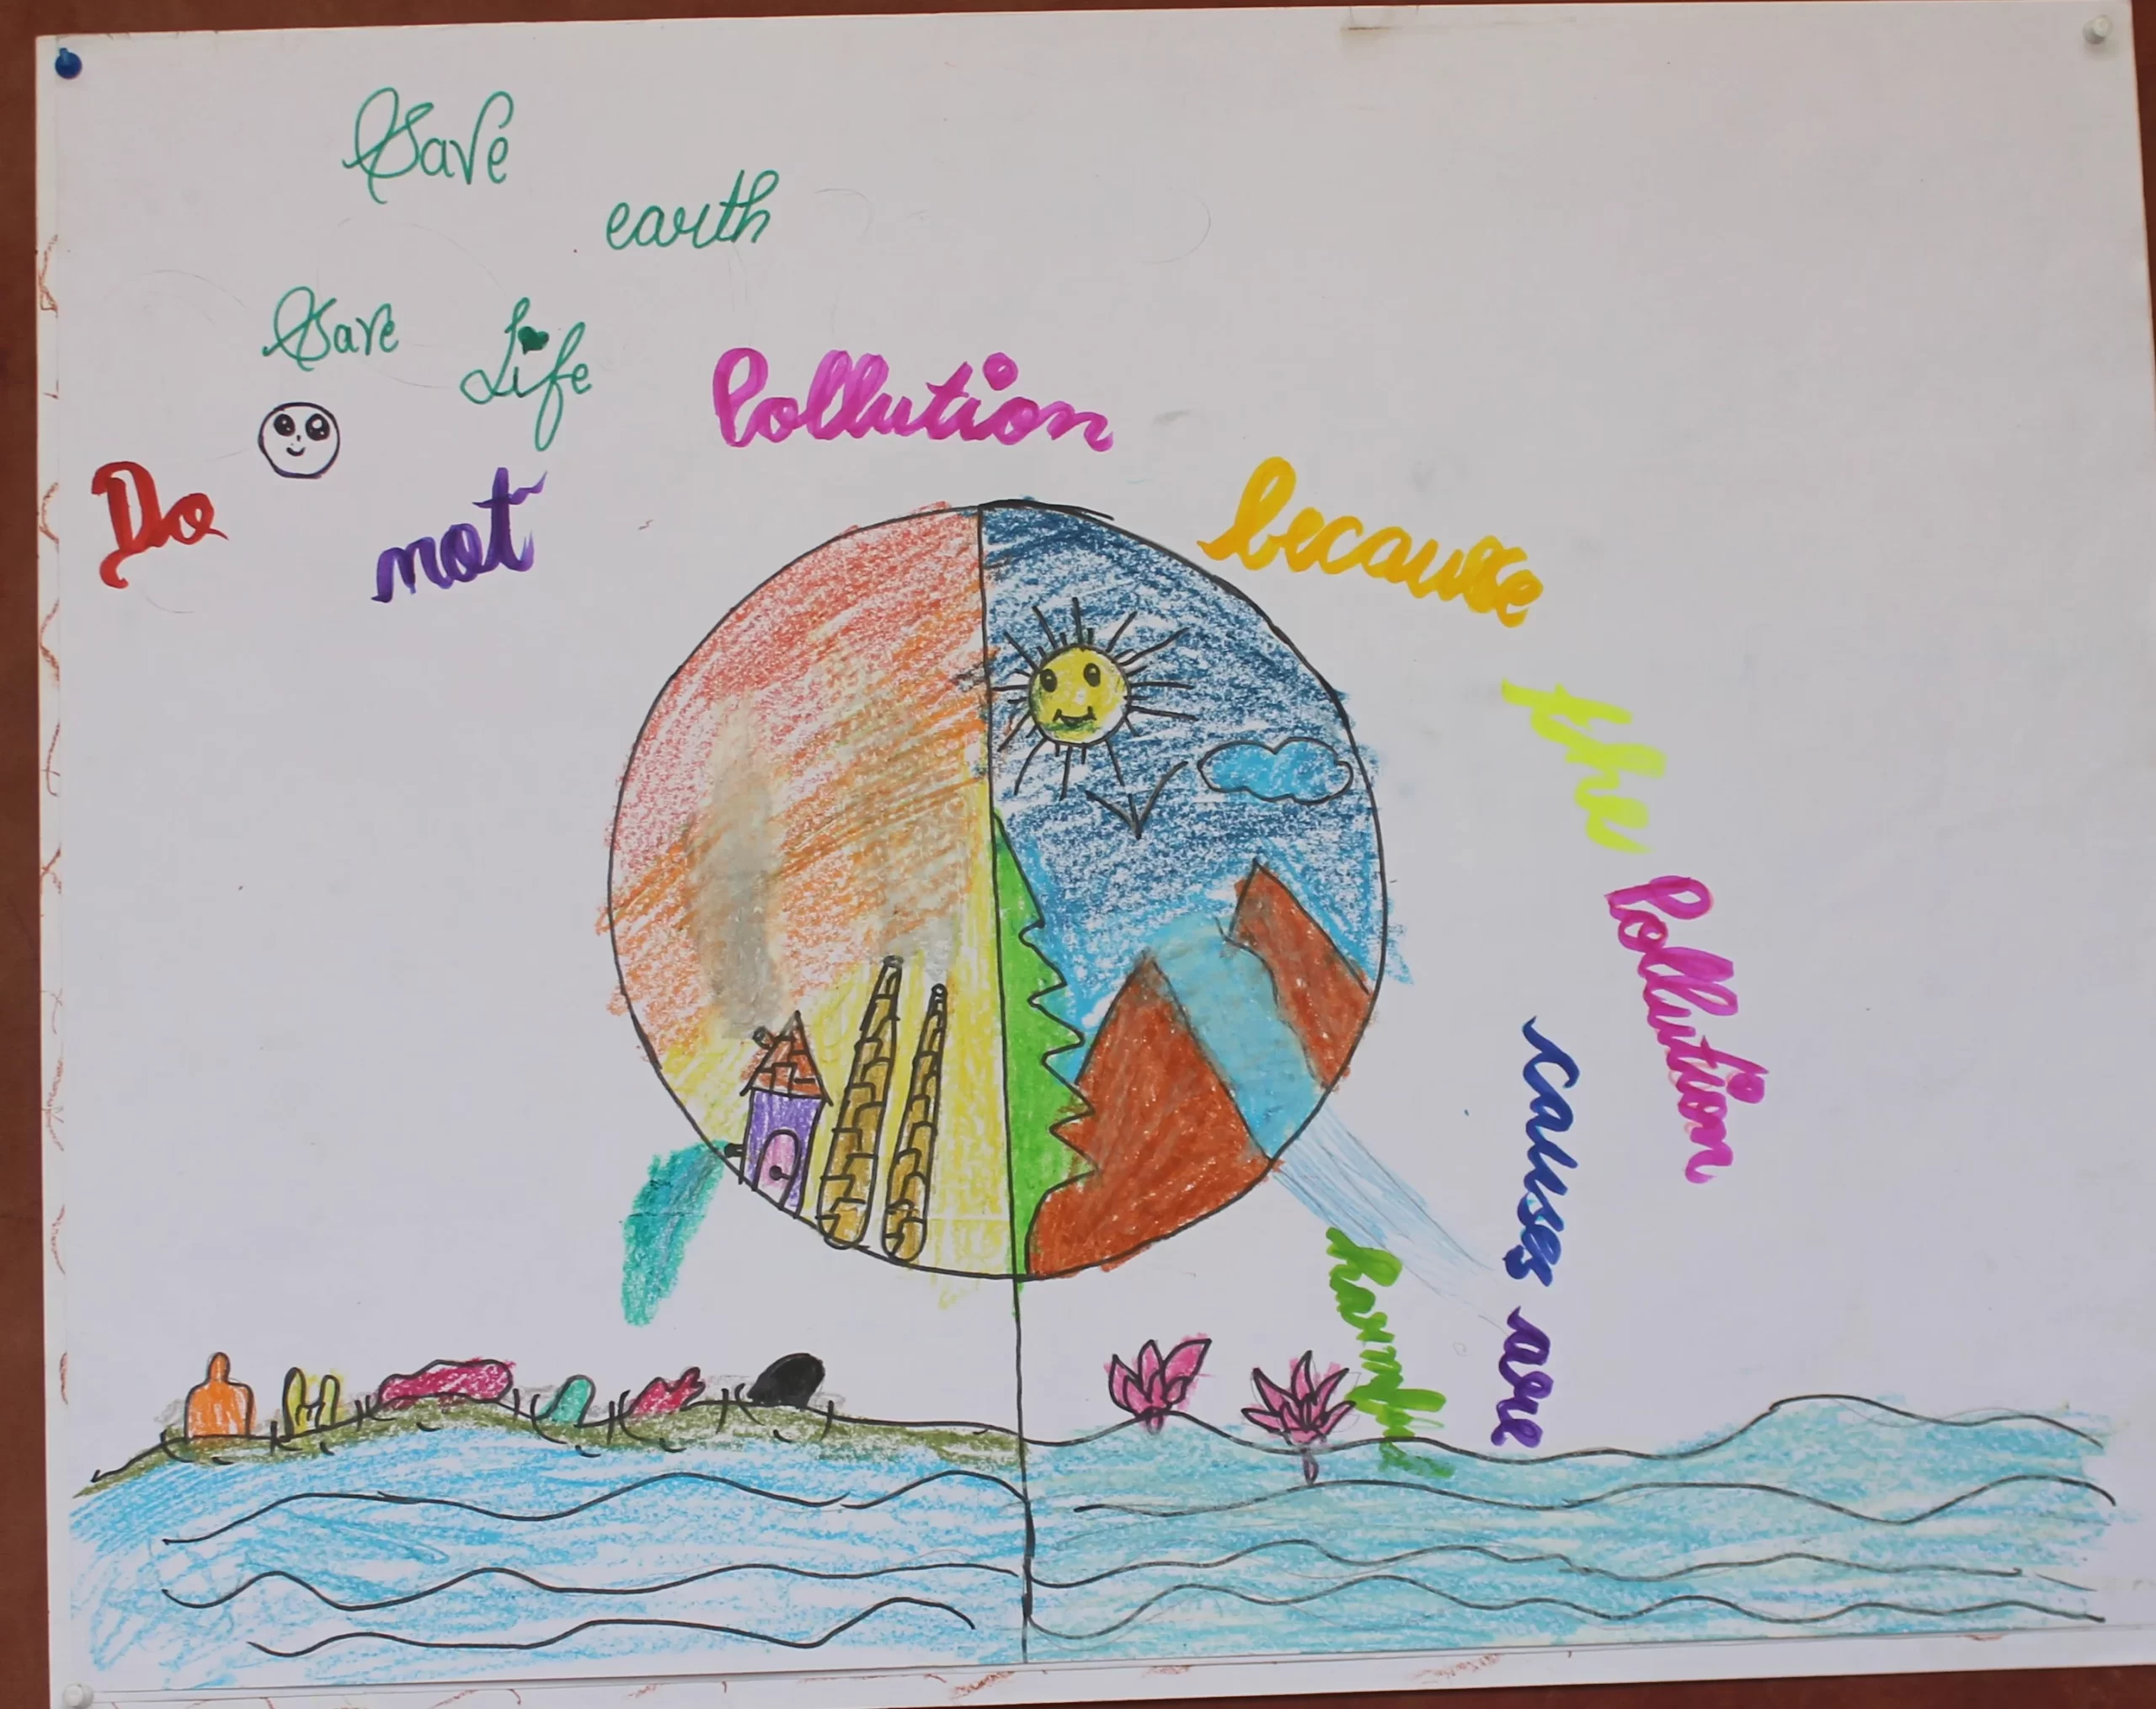 Save earth
Save Life
Do not Pollution because the Pollution causes are harmful